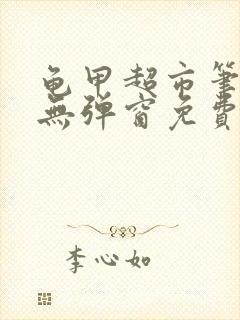 龟甲超市筆
無弹窗免費
李心如